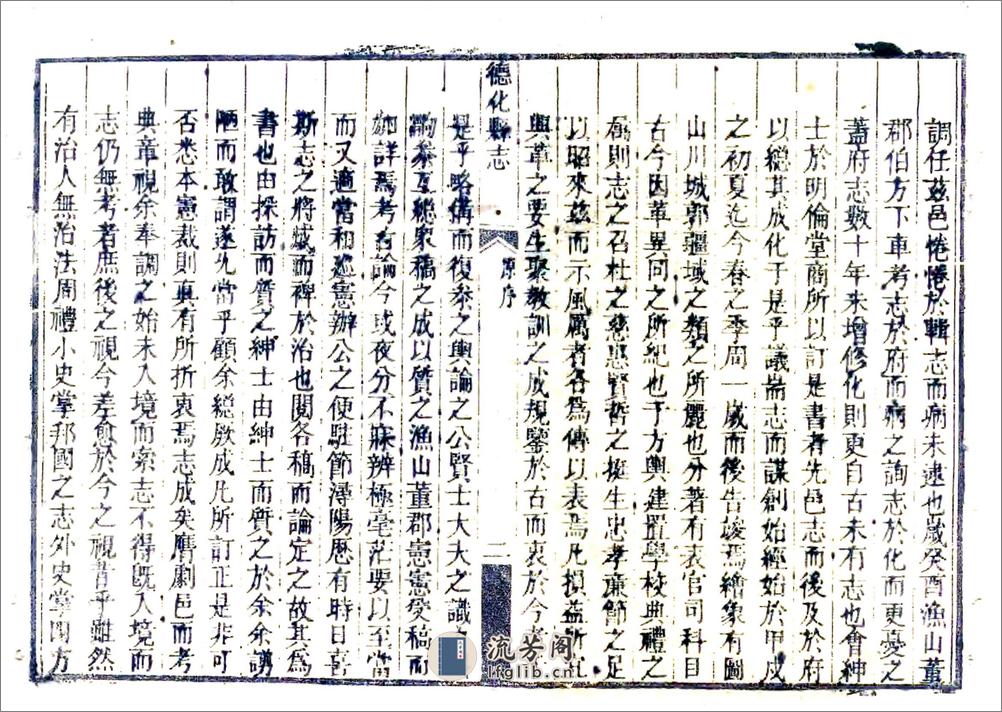 調任茲邑惓惓於輯志而病未逮也歲癸酉漁山董
郡伯方下車考志於府而病之詢志於化而更憂之
蓋府志數十年未增修化則更自古未有志也會紳
士於明倫堂商所以訂是書者先邑志而後及於府
以總其成化于是乎議崙志而謀創始經始於甲戌
之初夏迄今春之季周一歲而後告竣焉繪象有圖
山川城郭疆域之類之所麗也分著有表官司科目
古今因革異同之所紀也于方輿建置學校典禮之
屬則志之召杜之慈惠賢哲之挺生忠孝廉節之足
以昭來茲而示風厲者各為傳以表焉凡損益所
興革之要生聚教訓之成規鑒於古而衷於今者
德化縣志
原序
二
是乎略備而復參之輿論之公賢士大夫之識
參互總眾稿之成以質之漁山董郡憲憲受稿而
詳焉考古論今或夜分不寐辨極毫茫要以至當
而又適當和巡憲辦公之便駐節潯陽歷有時日喜
斯志之將成而裨於治也閱各稿而論定之故其為
書也由採訪而質之紳士由紳士而質之於余余謭
陋而敢謂遂允當乎顧余總厥成凡所訂正是非可
否悉本憲裁則真有所折衷焉志成矣膺劇邑而考
典章視余奉調之始未入境而索志不得既入境而
志仍無考者庶後之視今差愈於今之視昔乎雖然
有治人無治法周禮小史掌邦國之志外史掌四方
流芳阁
lfglib.cn